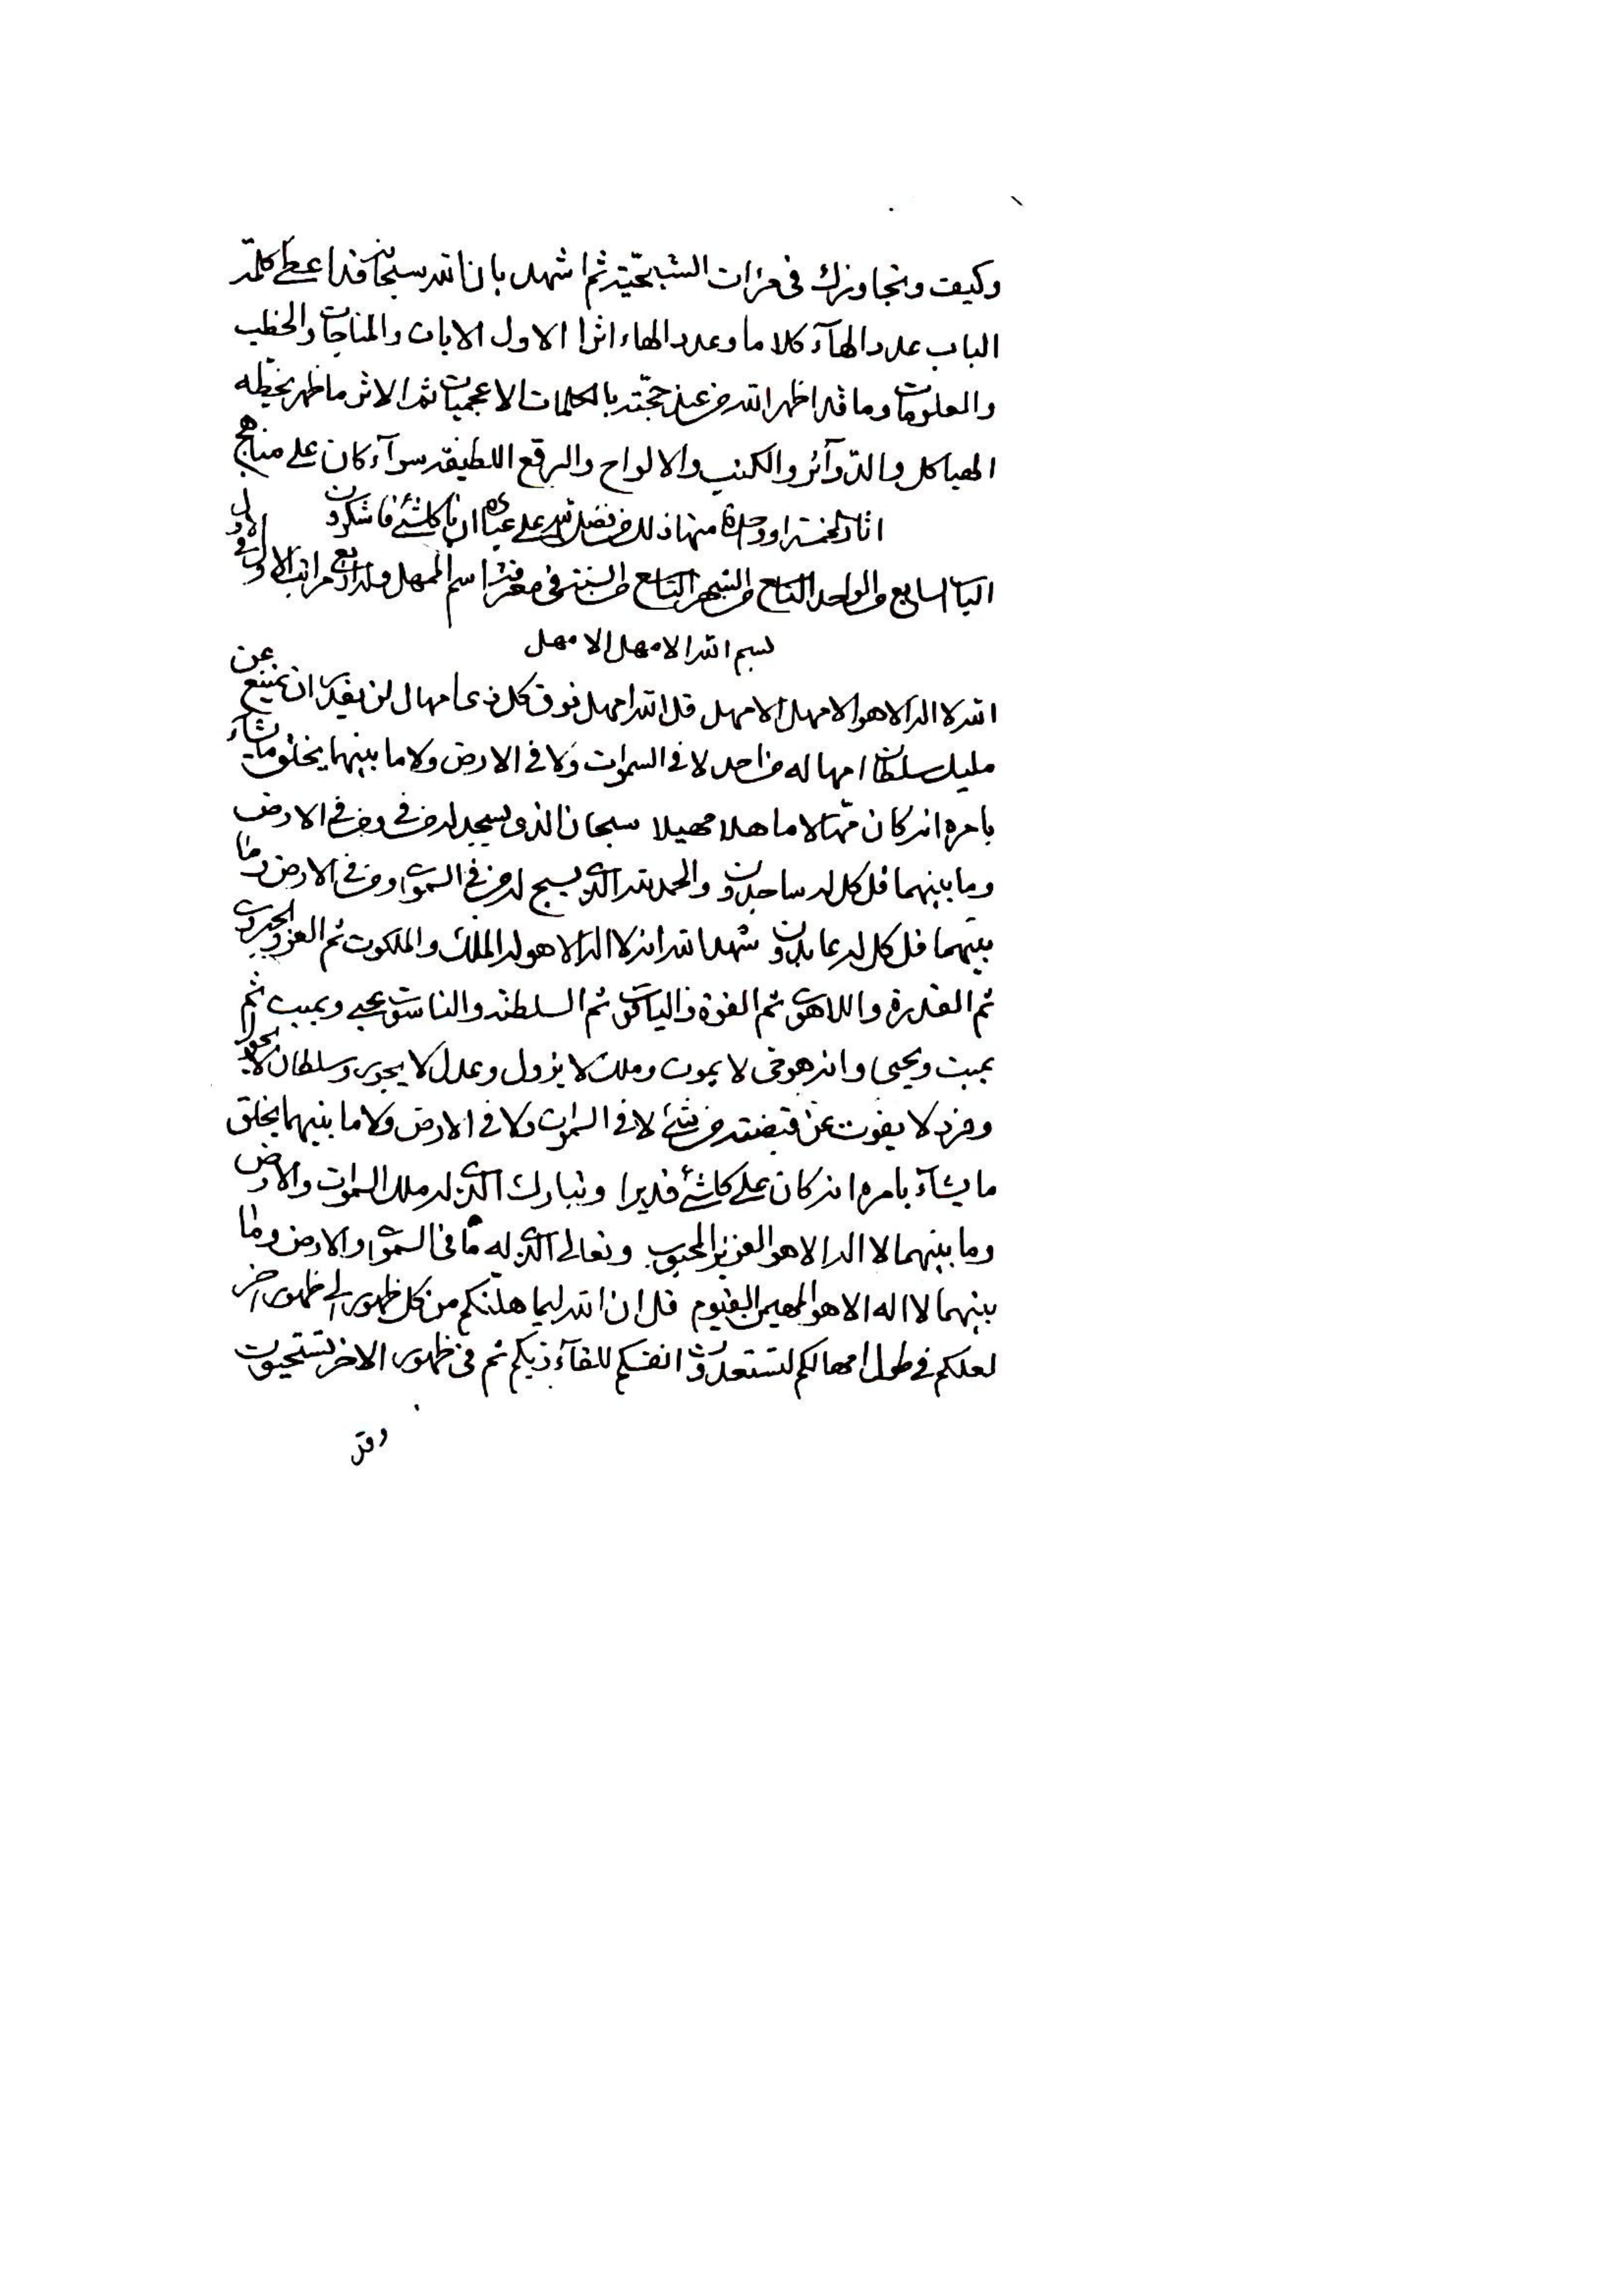 وكيف وتجاوزك في مرات الشبحية ثم اشهد بان الله سبحانه قد اعطى كلمة
الباب عدد الهآء كلاما وعدد الهاء اثرا الاول الايات والمناجات والخطب
والعلومات وما قد اظهر الله من عند حجته بالكلمات الاعجميات ثم الاثر ما ظهر بخطه
الهياكل والدوآئر والكتب والالواح والرقع اللطيفة سوآء كان على مناهج
اثار الخمسة او واحدة منها ذلك من فضل الله على عباده ان يا كلشئ فاشكرون
الباب السابع من الواحد التاسع من الشهر التاسع من السنة في معرفة اسم الممهل وله اربع مراتب الاول في الاول
بسم الله الامهل الامهل
الله لا اله الا هو الامهل الامهل قل الله امهل فوق كل ذي امهال لن يقدر ان يمتنع عن
مليك سلطان امهاله من احد لا في السموات ولا في الارض ولا ما بينهما يخلق ما يشآء
بامره انه كان مهالا ماهلا مهيلا سبحان الذي يسجد له من في ومن في الارض
وما بينهما قل كل له ساجدون والحمد لله الذي يسبح له من في السموات ومن في الارض وما
بينهما قل كل له عابدون شهد الله انه لا اله الا هو له الملك والملكوت ثم العز والجبروت
ثم القدرة واللاهوت ثم القوة والياقوت ثم السلطنة والناسوت يحيي ويميت ثم
يميت ويحيى وانه هو حي لا يموت وملك لا يزول وعدل لا يجور وسلطان لا يحول
وفرد لا يفوت عن قبضته من شئ لا في السموات ولا في الارض ولا ما بينهما يخلق
ما يشآء بامره انه كان على كلشئ قديرا وتبارك الذي له ملك السموات والارض
وما بينهما لا اله الا هو العزيز المحبوب وتعالى الذي له ما في السموات والارض وما
بينهما لا اله الا هو المهيمن القيوم قل ان الله ليماهلنكم من كل ظهور الى ظهور اخر
لعلكم في طول امهالكم لتستعدون انفسكم للقآء ربكم ثم في ظهور الاخر تستحيون
وقد